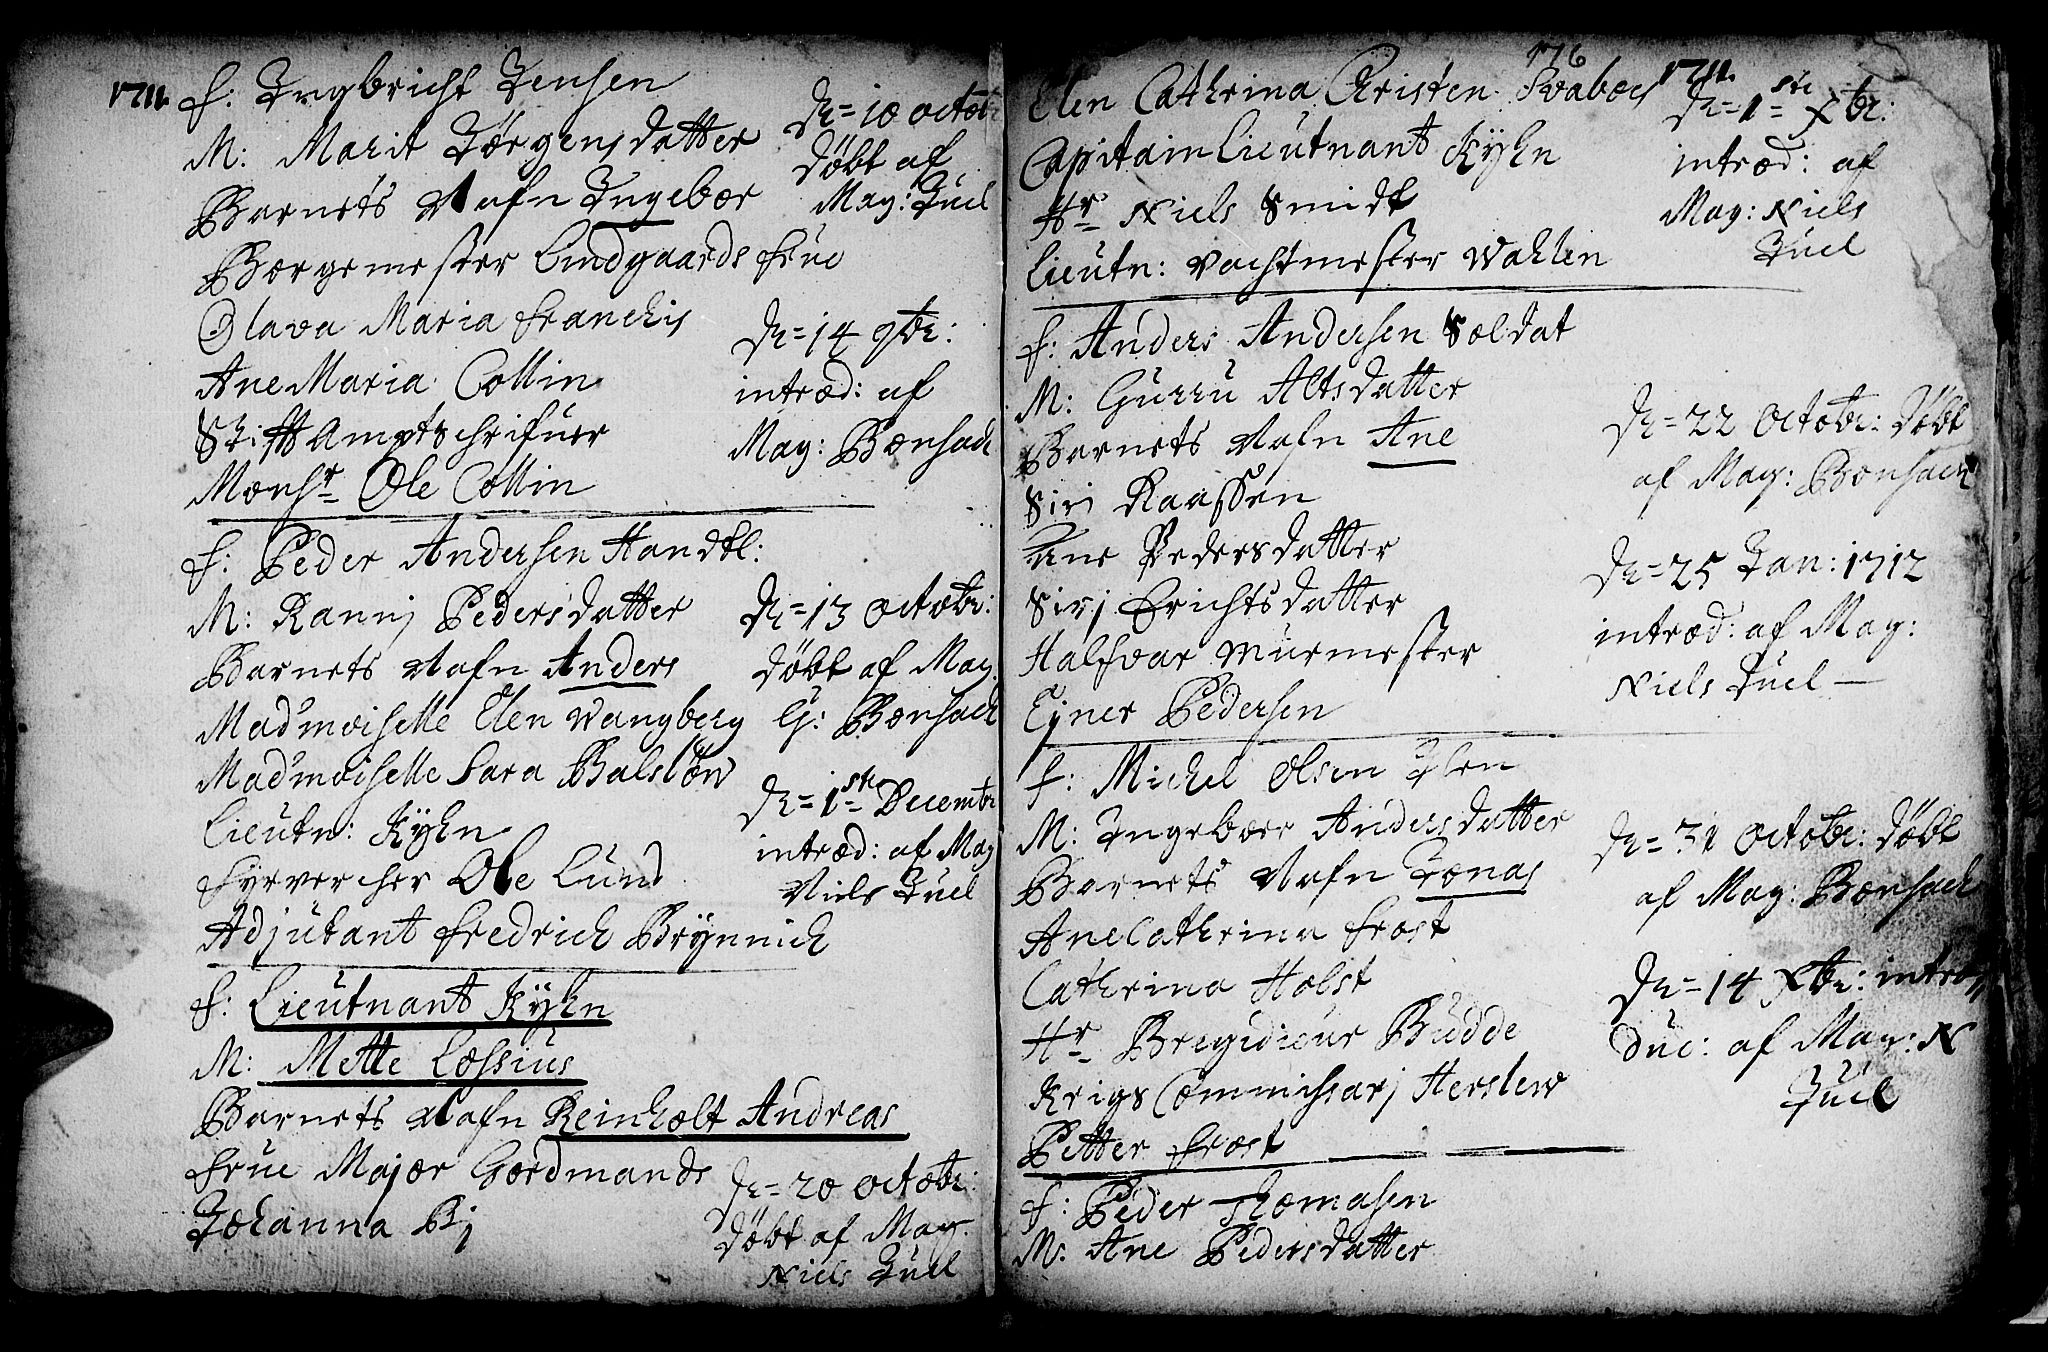 1711.
F: Ingbricht Jensen
M: Marit Jørgensdatter
Barnets Nafn Ingebor
Borgemester Lindgaards Frue
Olava Maria Franchis
Ane Maria Collin
Stifft Ampt schrifuer
Monsr Ole Collin
D= 10 octobr
døbt af
Mag: Juel
D= 14 9br:
introd: af
Mag: Bonsach
F: Peder Andersen Handtl:
M: Rannj Pedersdatter
Barnets Nafn Anders
Mad'moiselle Elen Wangberg
Mad'moiselle Sara Balslow
Lieutn: Kyhn
Fyrvercher Ole Lund
Adjutant Fredrich Brynnich
D= 13 octobr:
døbt af Mag
G: Bonsach
D= 1ste Decembr
introd: af Mag
Niels Juel
F: Lieutnant Kyhn
M: Mette Lossius
Barnets Nafn Reinholt Andreas
Frue Major Gordmands
Johanna Bj
D= 20 octobr:
døbt af Mag
Niels Juel
176
1711.
Elen Cathrina Christen Svaboes
Capitain Lieutnant Kyhn
Hr Niels Smidt
Lieutn: Vachtmester Wahlen
D= 1ste Xbr:
introd: af
Mag: Niels
Juel
F: Anders Andersen Soldat
M: Gurru Altsdatter
Barnets Nafn Ane
Siri Raassen
Ane Pedersdatter
Sirj Erichtsdatter
Halfvar Murmester
Ejner Pedersen
D= 22 Octobr: døbt
af Mag: Bonsach
D= 25 Jan: 1712
introd: af Mag:
Niels Juel —
F: Michel Olsen Ilen
M: Ingeborr Andersdatter
Barnets Nafn Jonas
Ane Cathrina Frost
Cathrina Holst
Hr Bregidieur Budde
Krigs Commissarj Herslew
Petter Frost
D= 31 Octobr: døbt
af Mag: Bonsach
D= 14 Xbr: intro,,
duc: af Mag: N
Juel
F: Peder Thomasen
M: Ane Pedersdatter